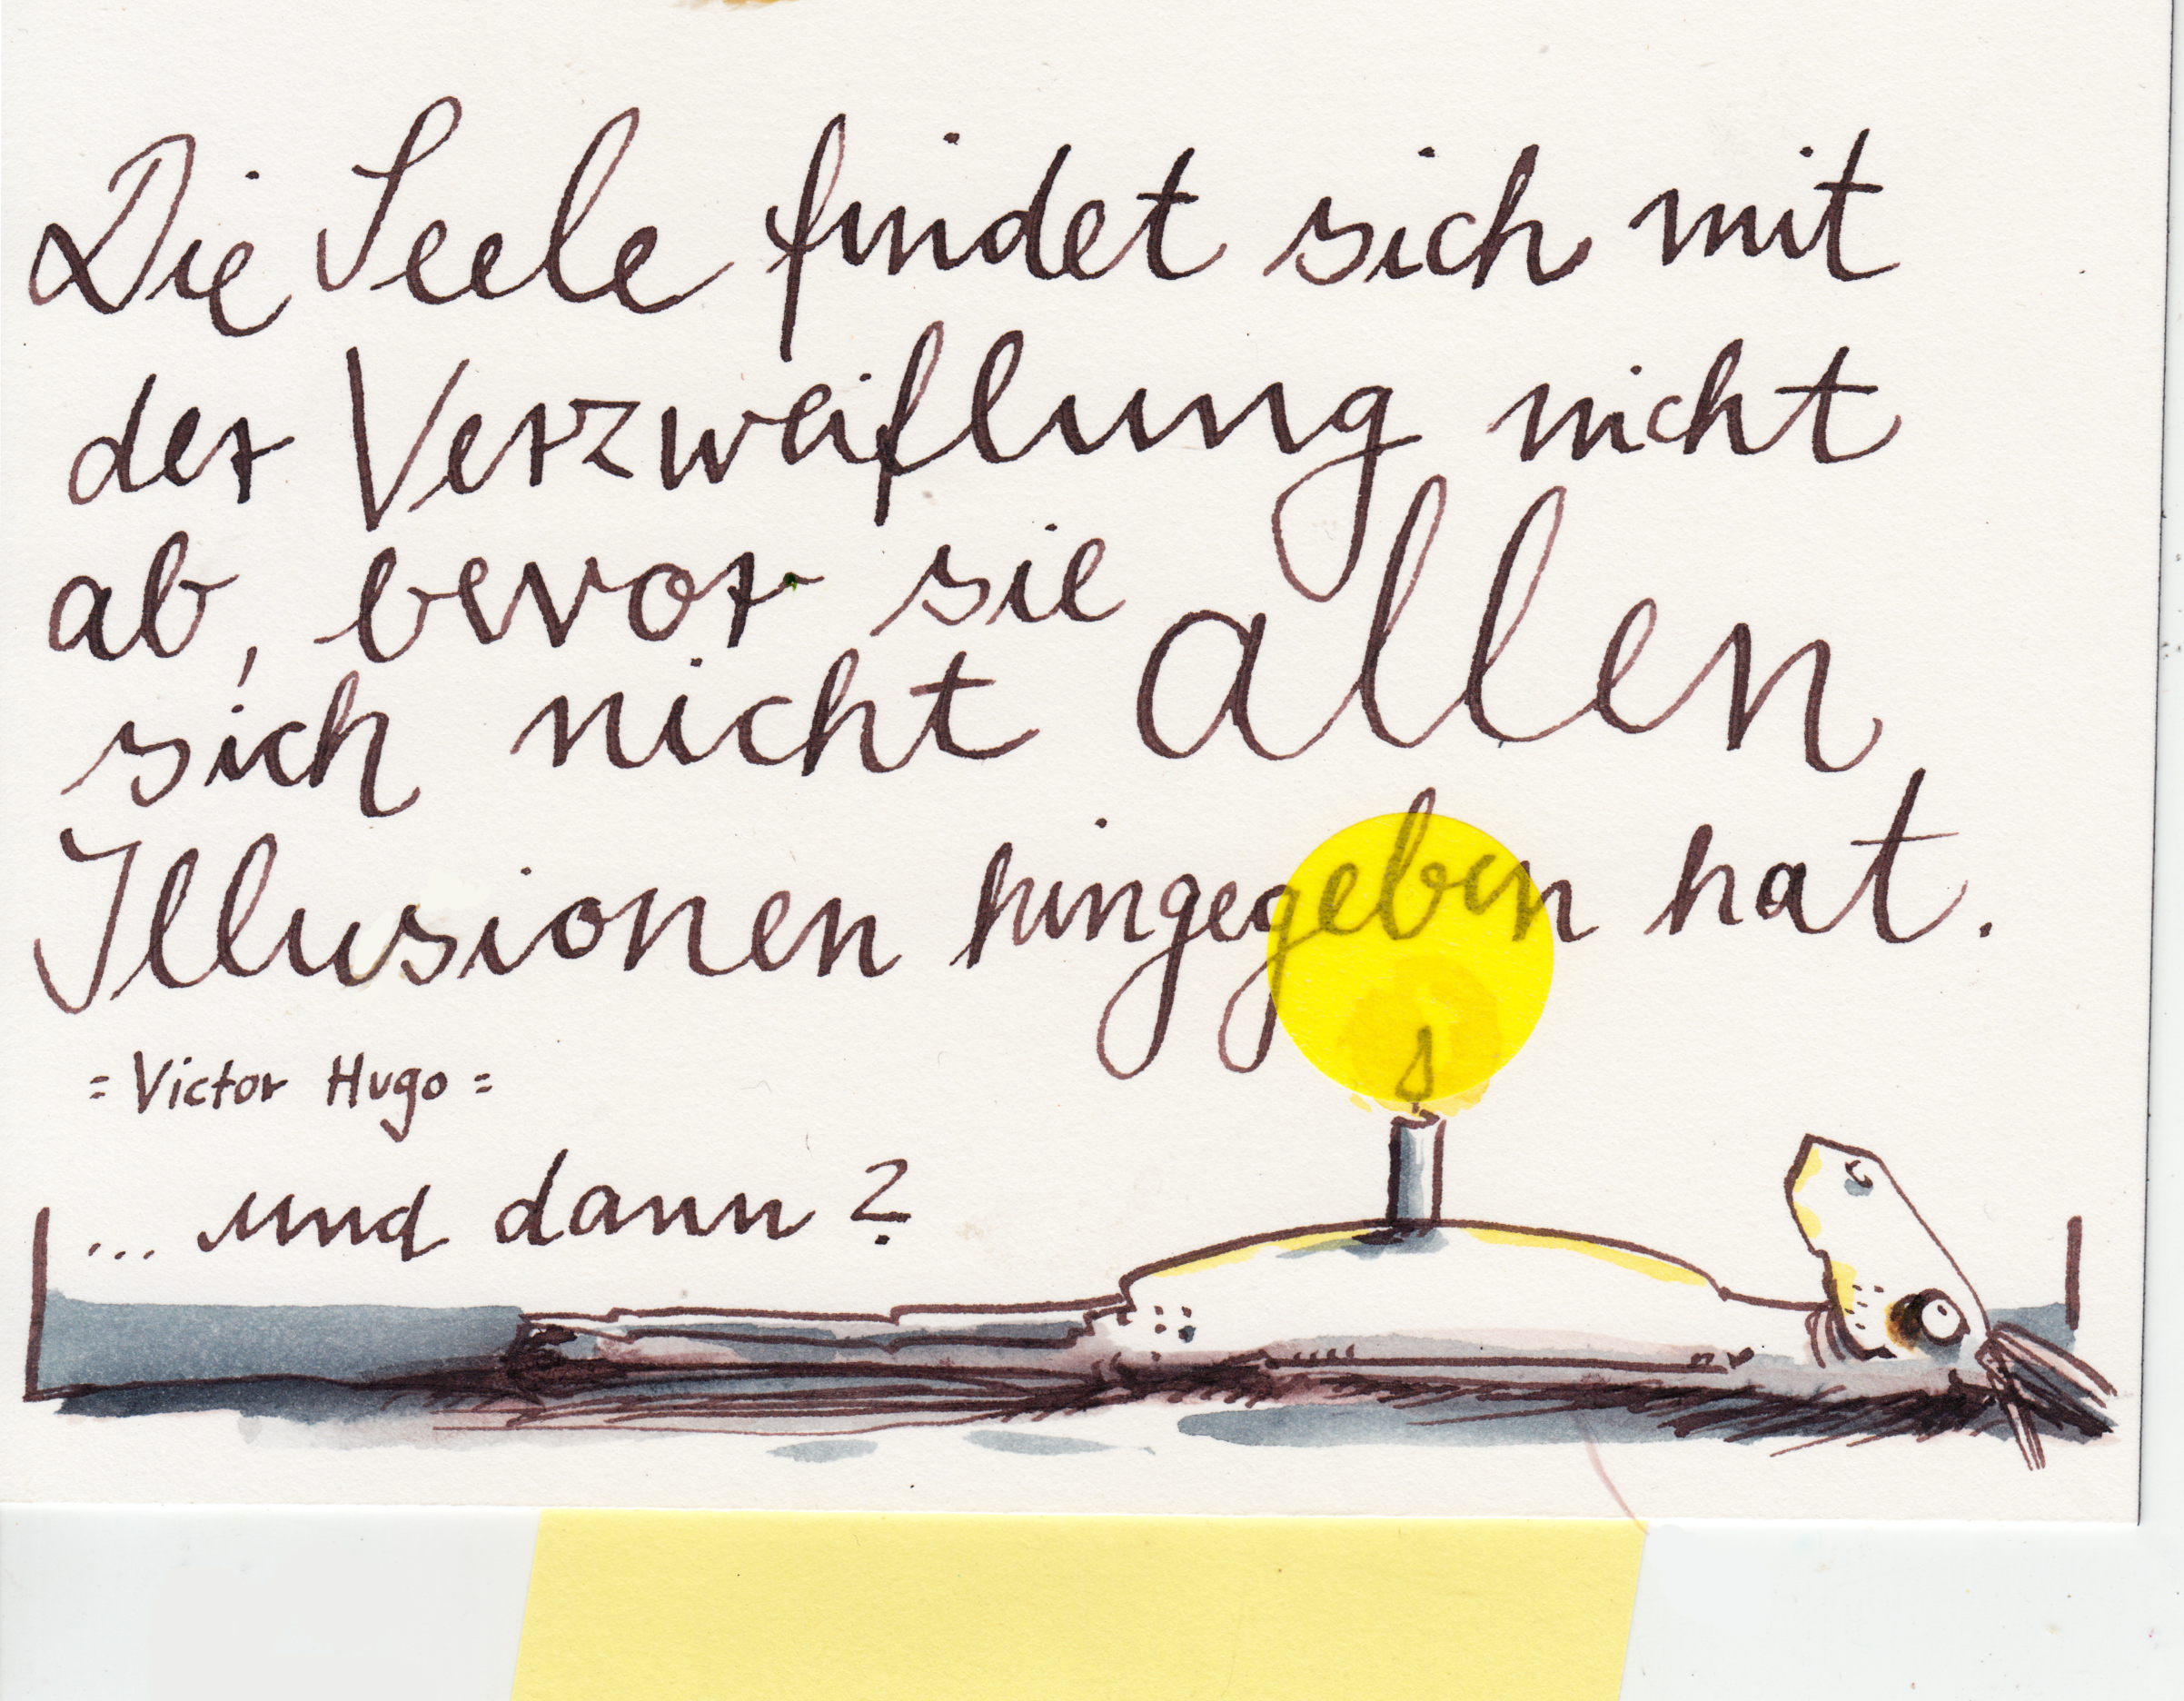 Die Seele findet sich mit
der Verzweiflung nicht
ab, bevor sie
sich nicht allen
Illusionen hingegeben hat.
= Victor Hugo =
... und dann?